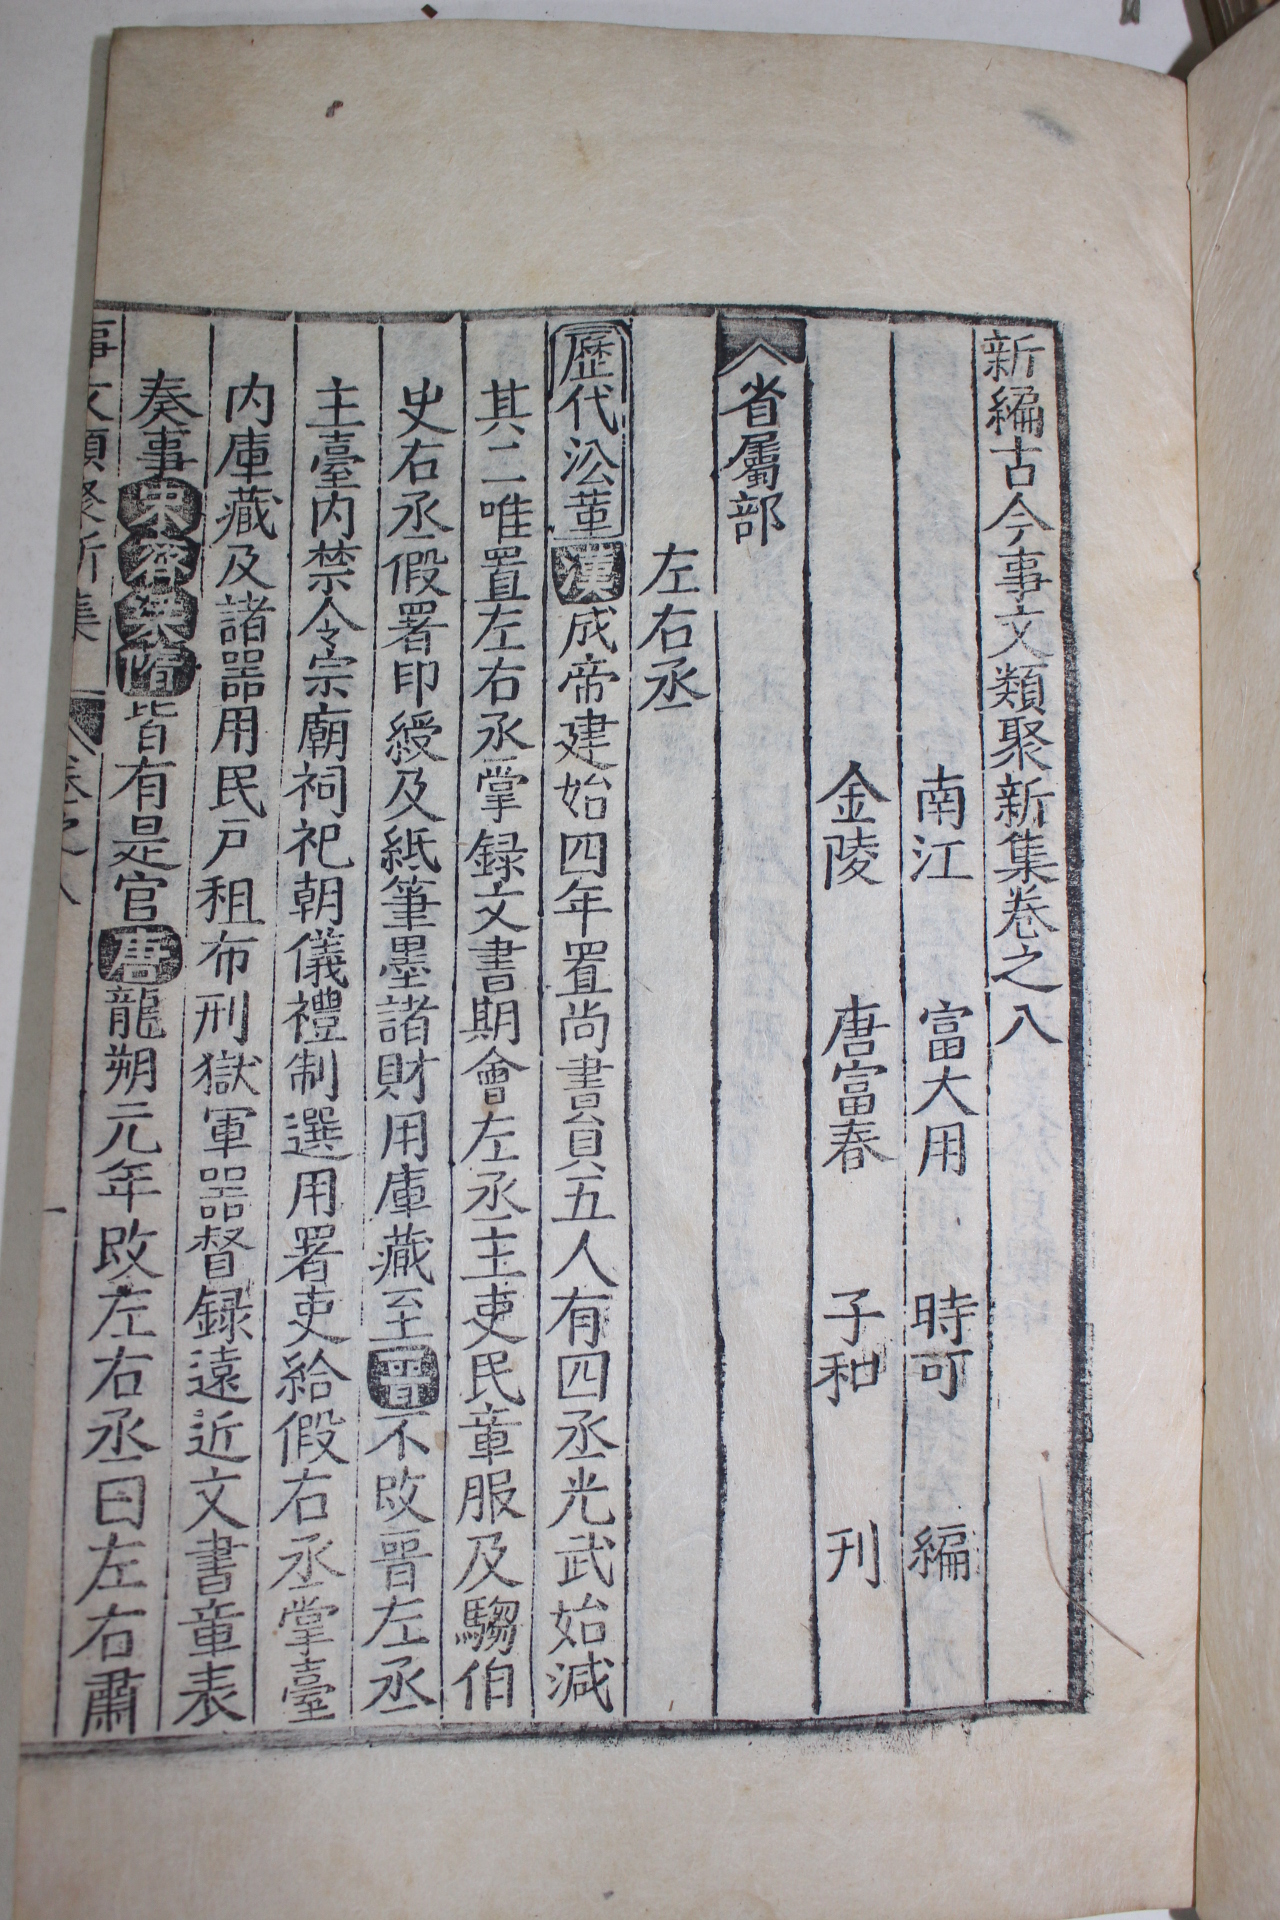 新編古今事文類聚新集卷之八
南江 富大用 時可 編
金陵 唐富春 子和 刊
省屬部
左右丞
歷代沿革漢成帝建始四年置尚書員五人有四丞光武始減
其二唯置左右丞掌録文書期會左丞主吏民章服及騶伯
史右丞假署印綬及紙筆墨諸財用庫藏至晋不改晋左丞
主臺内禁令宗廟祠祀朝儀禮制選用署吏給假右丞掌臺
内庫藏及諸器用民戶租布刑獄軍器督録遠近文書章表
奏事宋齊梁隋皆有是官唐龍朔元年改左右丞曰左右肅
事文類聚新集 卷之八 一